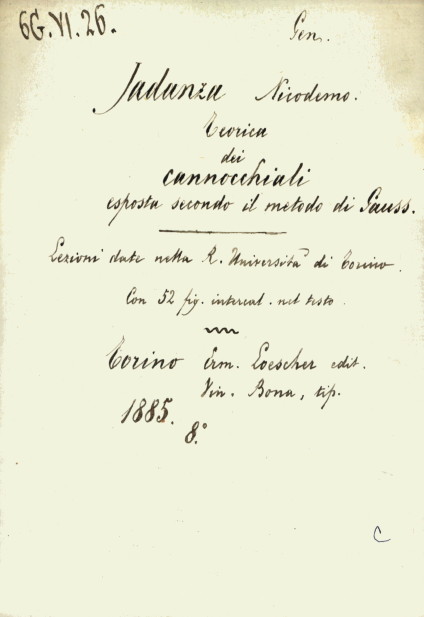 6G.VI.26.
Gen.
Jadanza Nicodemo.
Teorica
dei
cannocchiali
esposta secondo il metodo di Gauss.
Lezioni date nella R. Università di Torino.
Con 52 fig. intercal. nel testo.
Torino Erm. Loescher edit.
Vin. Bona, tip.
1885.
8.°
C